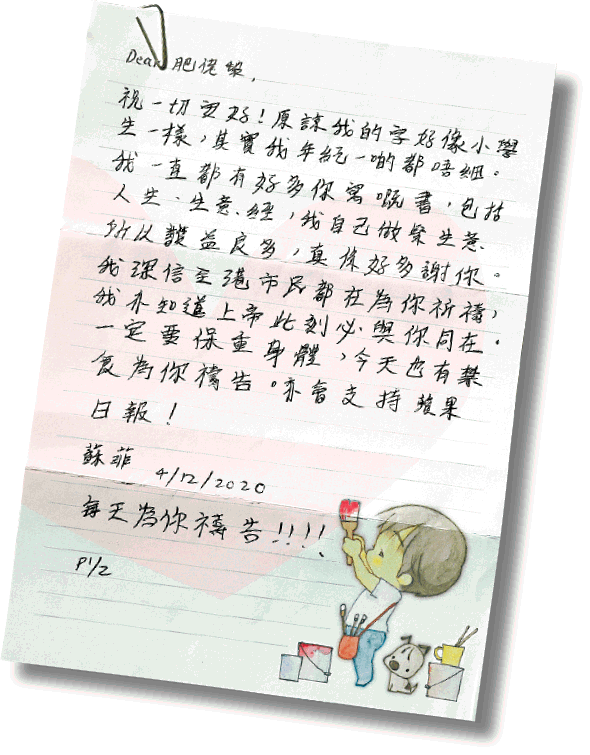 Dear 肥佬黎,
祝一切安好！原諒我的字好像小學
生一樣，其實我年紀一啲都唔細。
我一直都有好多你寫嘅書，包括
人生、生意經，我自己做緊生意
所以獲益良多，真係好多謝你。
我深信全港市民都在為你祈禱，
我亦知道上帝此刻必與你同在。
一定要保重身體，今天也有禁
食為你禱告。亦會支持蘋果
日報！
蘇菲
4/12/2020
每天為你禱告!!!!
P1/2